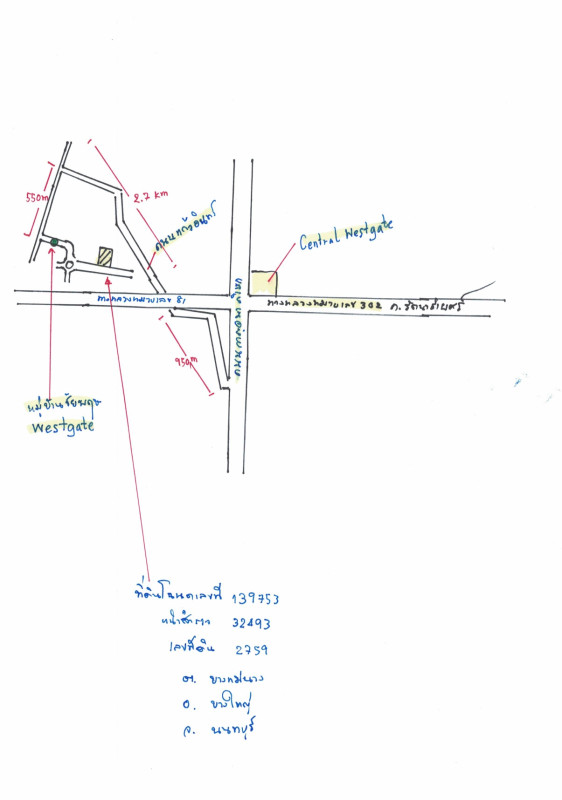 550m
2.7 km
ถนนแก้วอินทร์
Central Westgate
ทางหลวงหมายเลข 81
ทางหลวงหมายเลข 302 ถ.รัตนาธิเบศร์
950m
หมู่บ้านชัยพฤกษ์
westgate
ที่ดินโฉนดเลขที่ 139753
หน้าสำรวจ 32493
เลขที่ดิน 2759
ต. บางแม่นาง
อ. บางใหญ่
จ. นนทบุรี